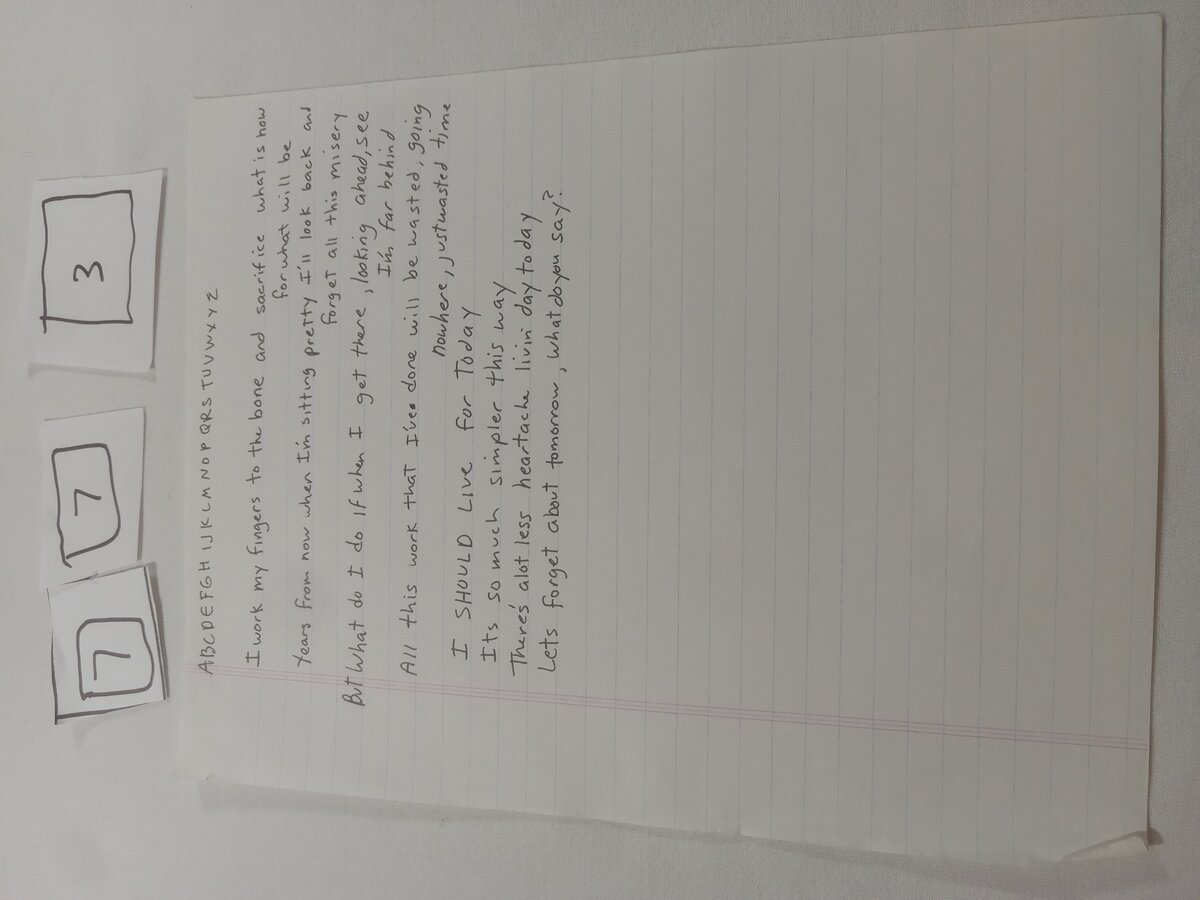 7 7 3
ABCDEFGHIJKLMNOPQRSTUVWXYZ
I work my fingers to the bone and sacrifice what is now
for what will be
Years from now when I'm sitting pretty I'll look back and
forget all this misery
But What do I do if when I get there, looking ahead, see
I'm far behind
All this work that I've done will be wasted, going
nowhere, just wasted time
I SHOULD LIVE for Today
Its so much simpler this way
There's alot less heartache livin' day to day
Lets forget about tomorrow, what do you say?